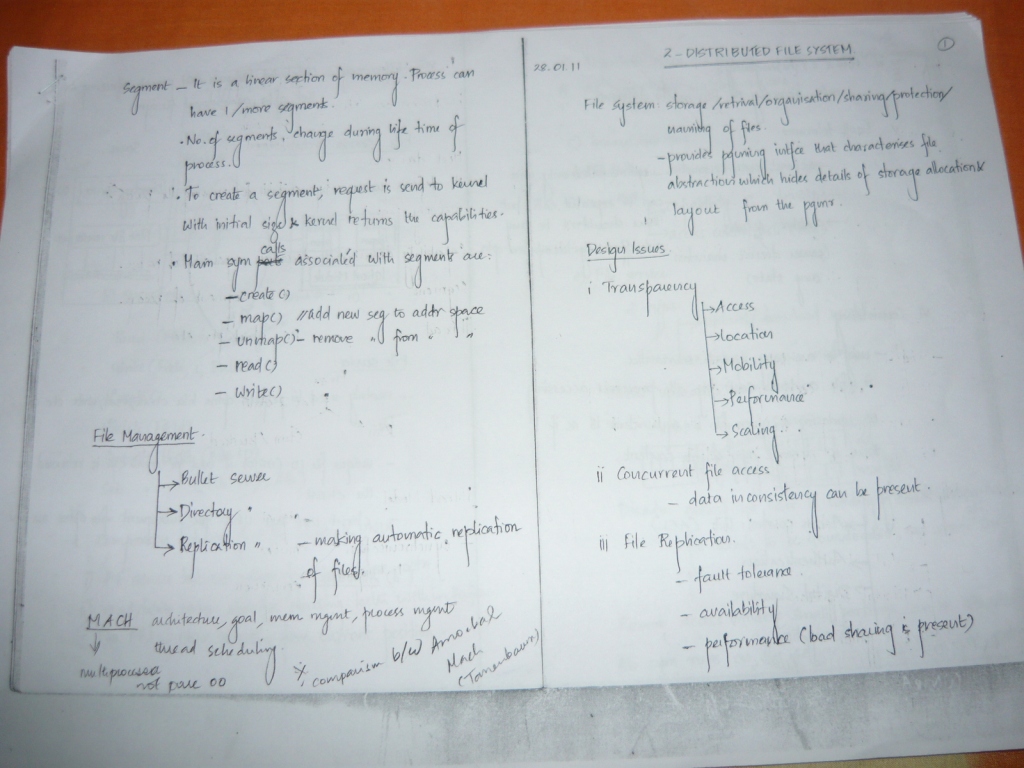 Segment - It is a linear section of memory. Process can
have 1/more segment.
• No. of segments, change during life time of
process.
• To create a segment, request is send to kernel
with initial size & kernel returns the capabilities.
calls
• Main sym associated with segments are:
- create()
- map() //add new seg to addr space
- unmap() - remove " from " "
- read()
- write()
File Management.
→ Bullet server
→ Directory "
→ Replication " - making automatic replication
of files.
MACH architecture, goal, mem mgmt, process mgmt
thread scheduling.
multiprocessor
not pure OO
* comparism b/w Amoeba &
Mach
(Tanenbaum)
2 - DISTRIBUTED FILE SYSTEM
1
28.01.11
File system: storage/retrival/organisation/sharing/protection/
naming of files.
- provides pgming intfce that characterises file
abstraction which hides details of storage allocation &
layout from the pgmr.
Design Issues
i Transparency
→ Access
→ Location
→ Mobility
→ Performance
→ Scaling
ii Concurrent file access
- data inconsistency can be present.
iii File Replication.
- fault tolerance
- availability
- performance (load sharing is present)